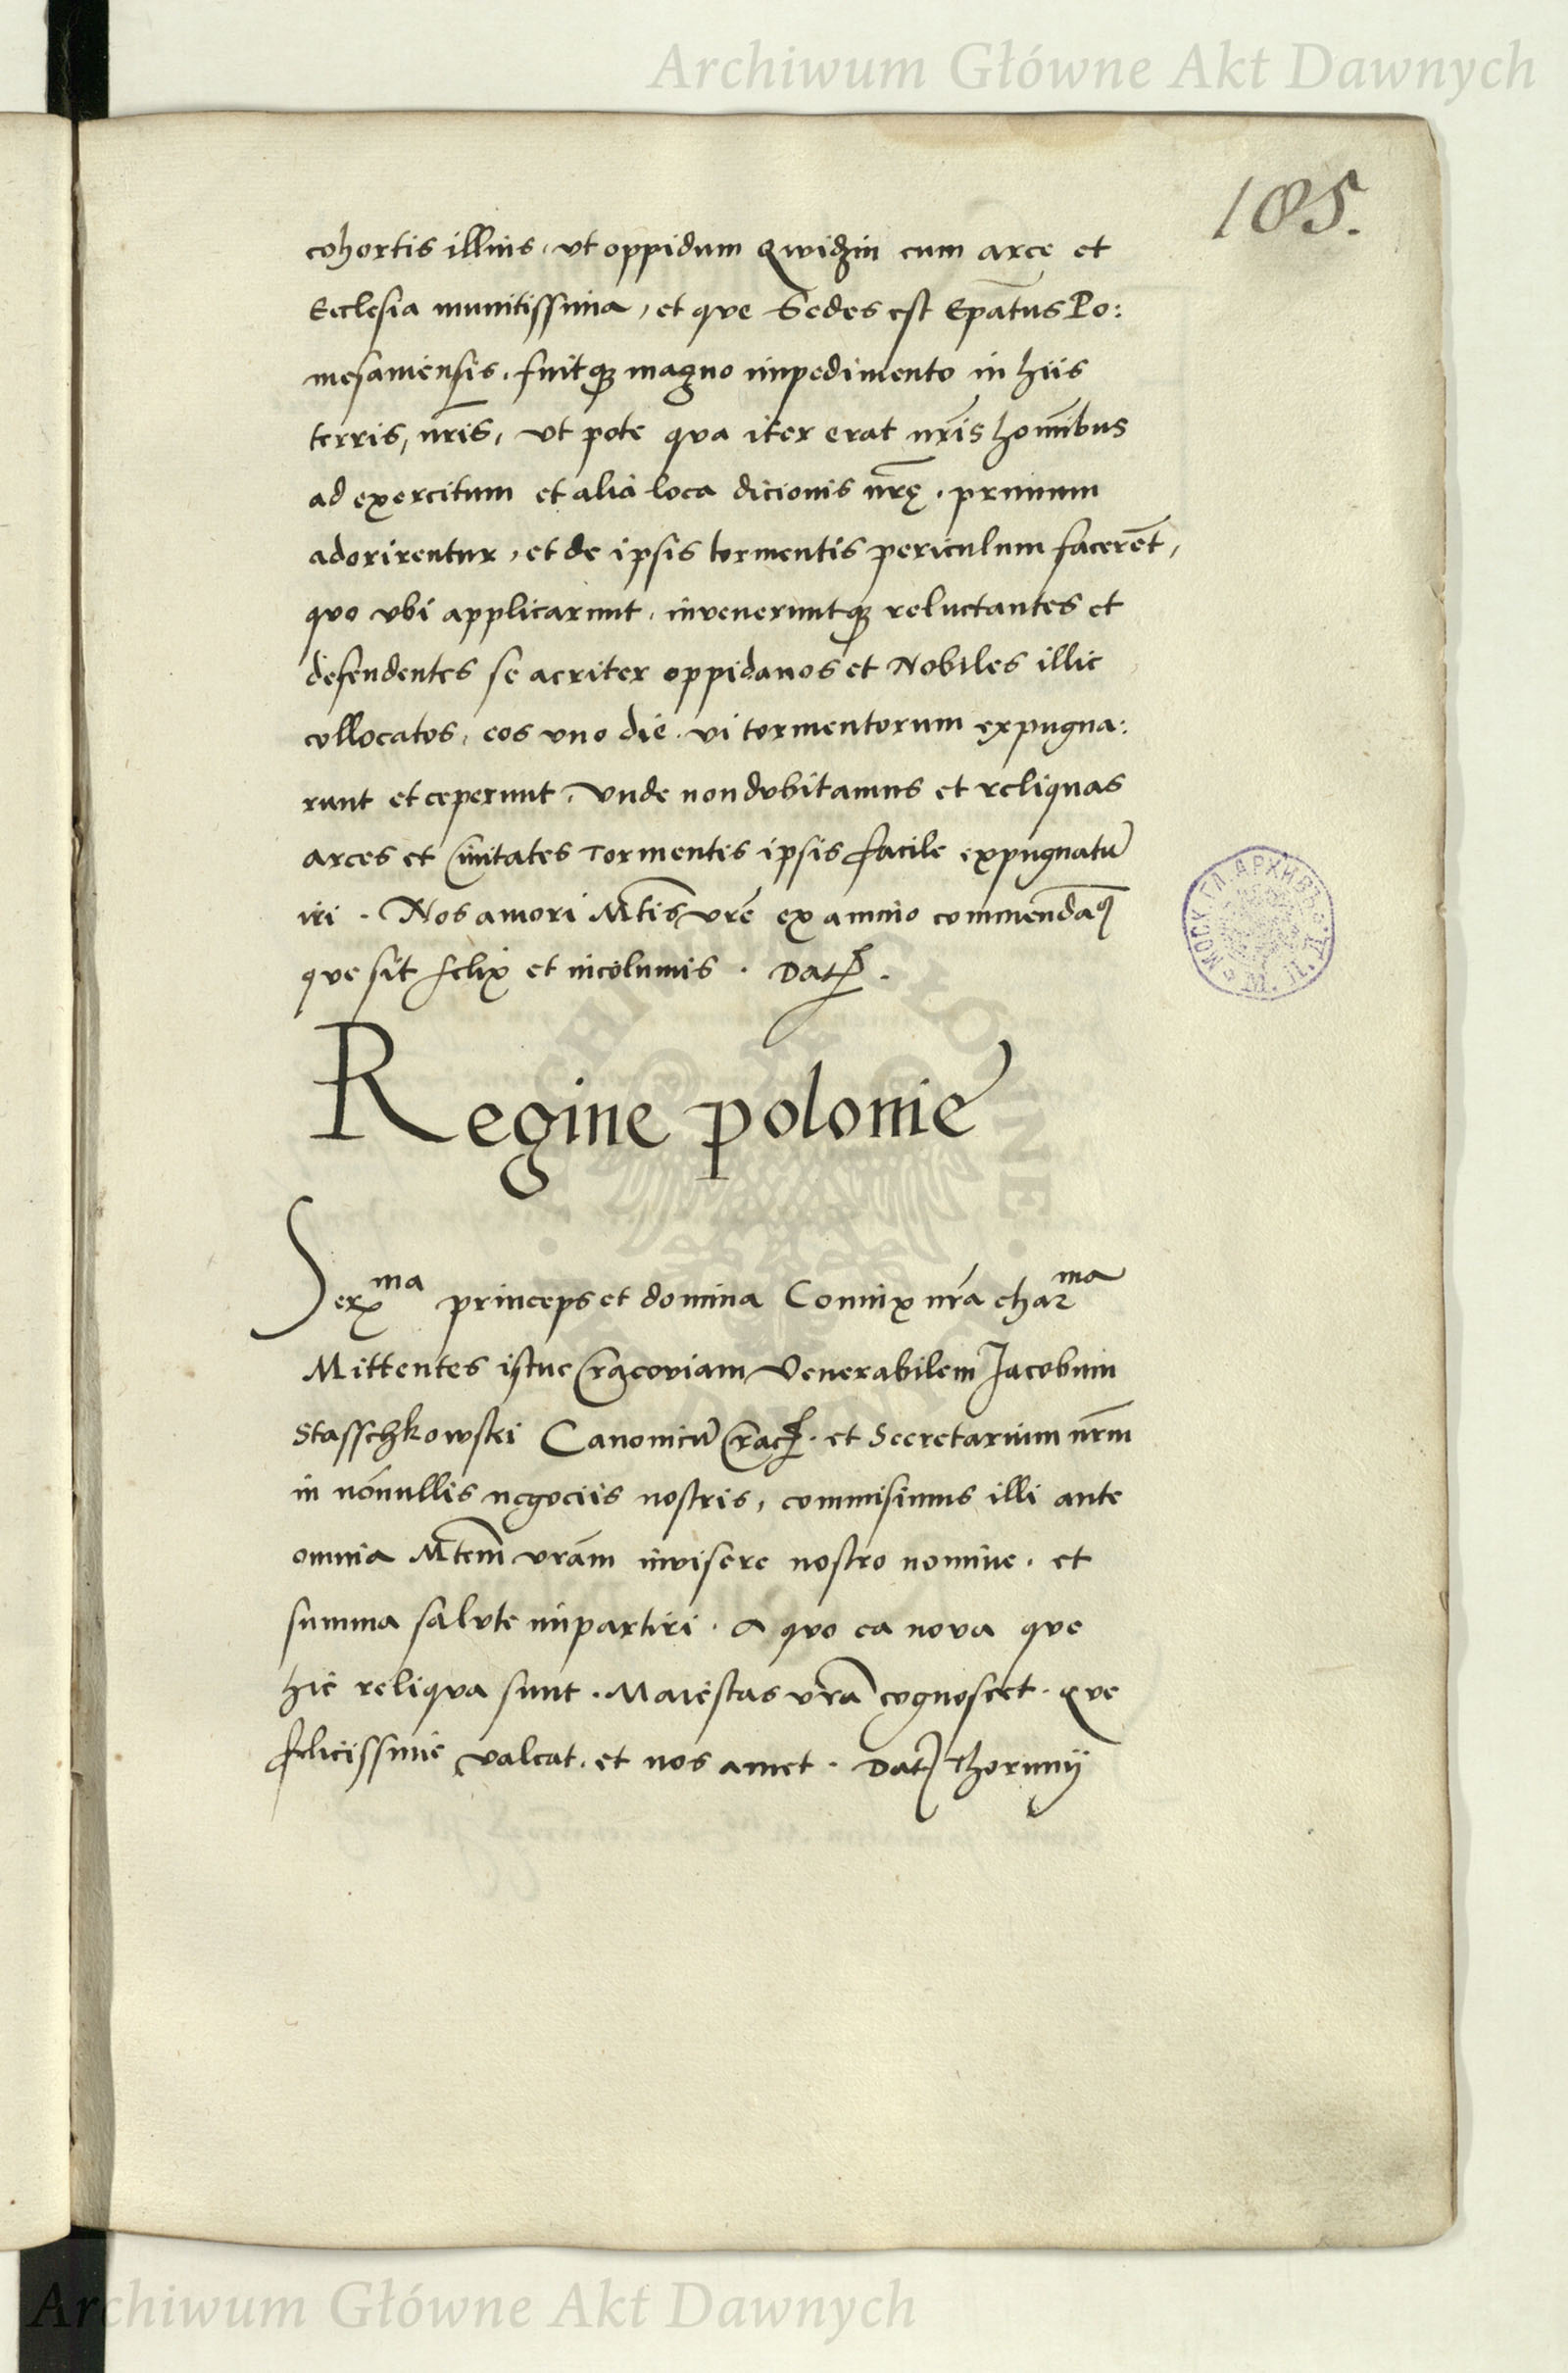 Archiwum Główne Akt Dawnych
185.
cohortis illius, ut oppidum Qwidzin cum arce et
Ecclesia munitissima, et que Sedes est Ep̄atus Po:
mesaniensis, fuitqȝ magno impedimento in hiis
terris, nr̄is, ut pote qua iter erat nr̄is hoīnibus
ad exercitum et alia loca dicionis nr̄ę. primum
adorirentur, et de ipsis tormentis periculum facerēt,
quo ubi applicarunt, inveneruntqȝ reluctantes et
defendentes se acriter oppidanos et Nobiles illic
collocatos, eos uno die vi tormentorum expugna:
runt et ceperunt, Unde non dubitamus et reliquas
arces et Civitates Tormentis ipsis facile expugnatū
iri. Nos amori Mt̄is vrē ex animo commendaq̄
que sit felix et incolumis. Dat.
Regine polonie
Serx^ma princeps et domina Coniux nr̄a char^ma
Mittentes istuc Cracoviam Venerabilem Jacobum
Stasschkowski Canonicū Crac. et Secretarium nr̄m
in nōnullis negociis nostris, commisimus illi ante
omnia Mt̄em vrām invisere nostro nomine. et
summa salute impartiri. A quo ea nova que
hic reliqua sunt. Maiestas vrā cognoscet. que
felicissime valeat. et nos amet. Dat Thorunij
Archiwum Główne Akt Dawnych